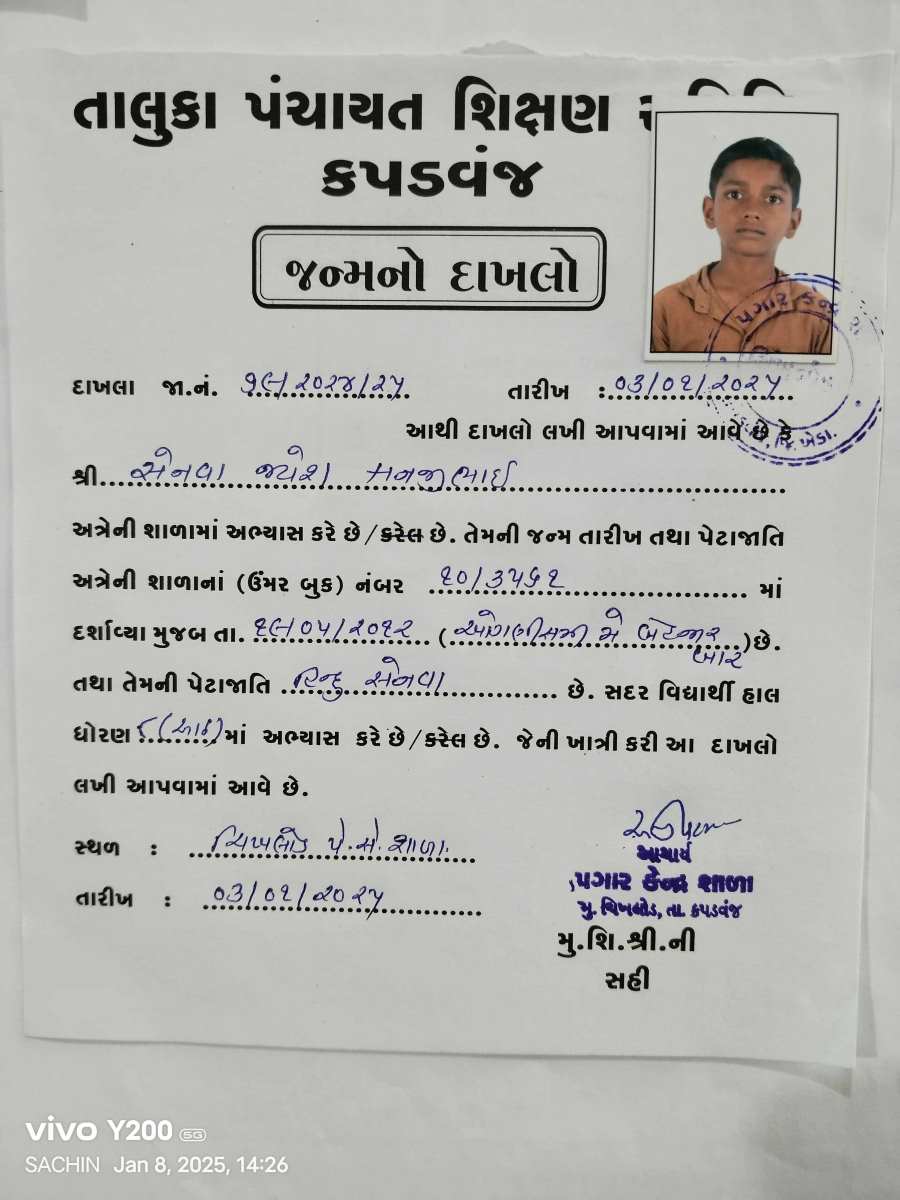 તાલુકા પંચાયત શિક્ષણ
કપડવંજ
જન્મનો દાખલો
દાખલા જા.નં. ૧૯/૨૦૨૪/૨૫ તારીખ : ૦૩/૦૧/૨૦૨૫
આથી દાખલો લખી આપવામાં આવે છે કે
શ્રી સેનવા જયેશ મનજીભાઈ
અત્રેની શાળામાં અભ્યાસ કરે છે/કરેલ છે. તેમની જન્મ તારીખ તથા પેટાજાતિ
અત્રેની શાળાનાં (ઉંમર બુક) નંબર ૧૦/૩૫૬૧ માં
દર્શાવ્યા મુજબ તા. ૧૯/૦૫/૨૦૧૨ (ઓગણીસમી મે બેહજાર બાર) છે.
તથા તેમની પેટાજાતિ હિન્દુ સેનવા છે. સદર વિદ્યાર્થી હાલ
ધોરણ ૮(આઠ) માં અભ્યાસ કરે છે/કરેલ છે. જેની ખાત્રી કરી આ દાખલો
લખી આપવામાં આવે છે.
સ્થળ : ચિખલોડ પે.સે.શાળા
તારીખ : ૦૩/૦૧/૨૦૨૫
આચાર્ય
પગાર કેન્દ્ર શાળા
મુ. ચિખલોડ, તા. કપડવંજ
મુ.શિ.શ્રી.ની
સહી
પગાર કેન્દ્ર
જિ.ખેડા.
vivo Y200 5G
SACHIN Jan 8, 2025, 14:26